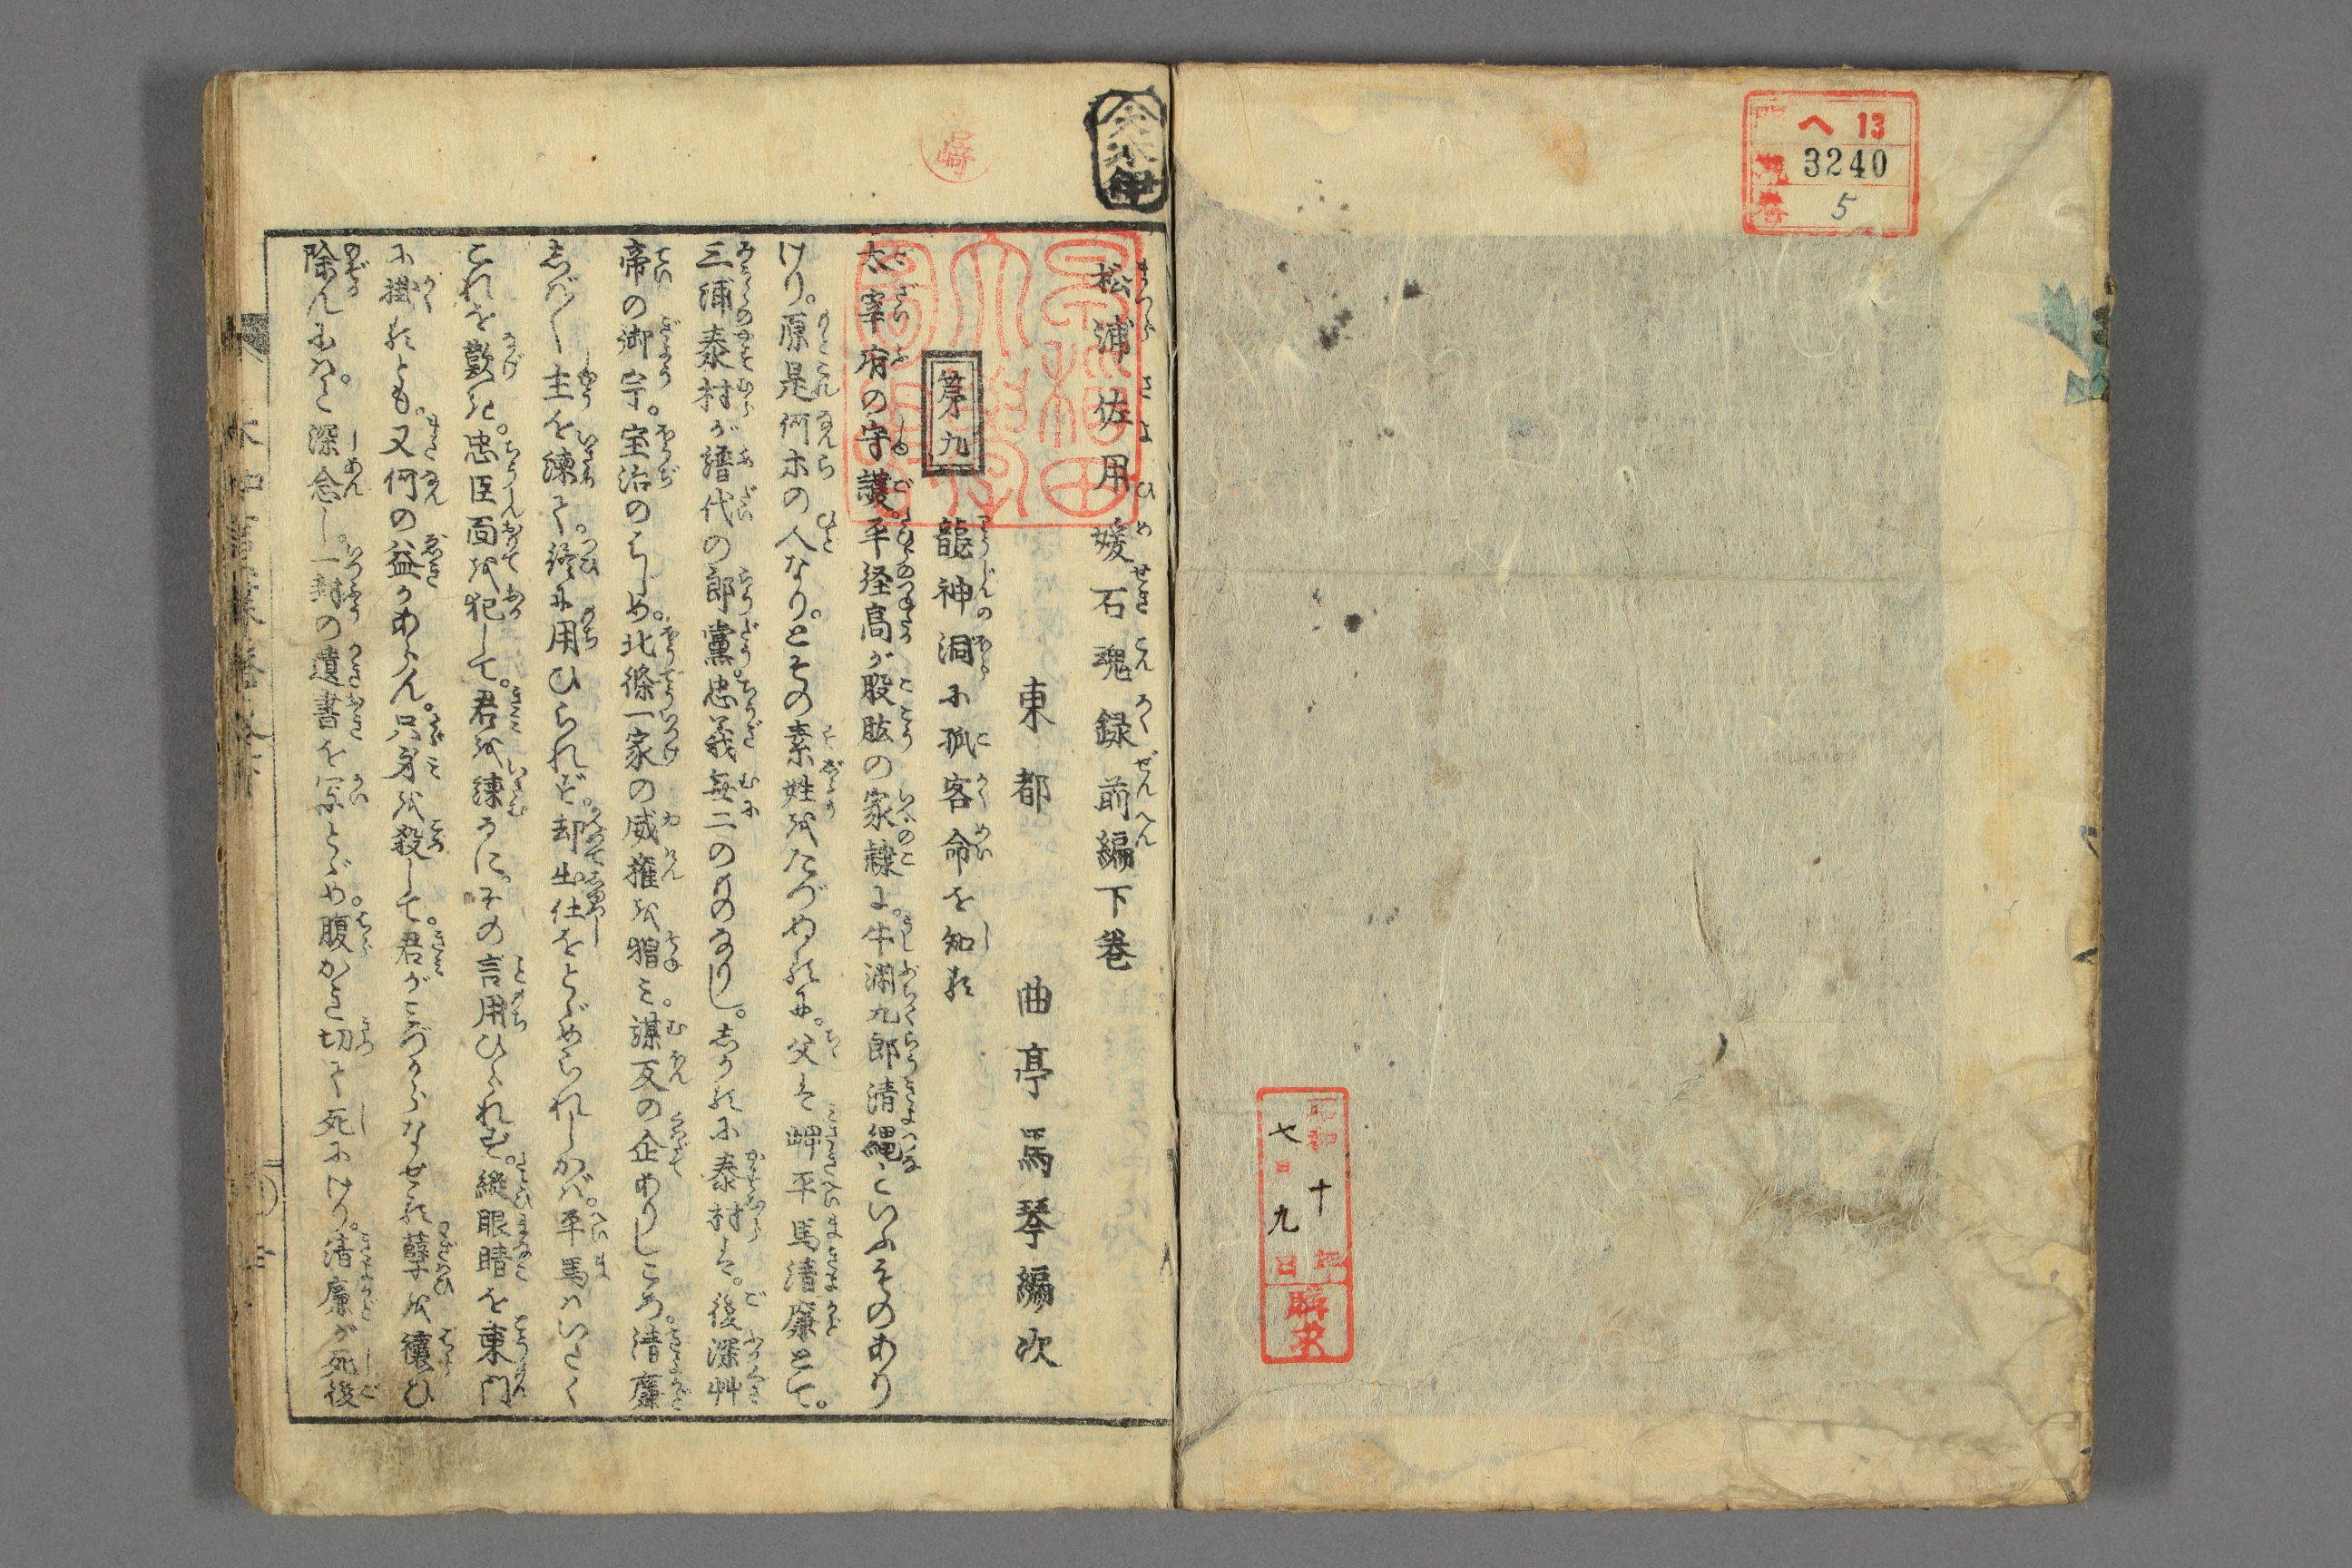 ヘ 13
3240
5
昭和十年
七月九日
購求
松浦佐用媛石魂録前編下巻
東都 曲亭馬琴編次
第九 龍神洞に孤客命を知る
太宰府の守護平経高が股肱の家隷に。牛淵九郎清縄といふものあり
けり。原是何ホの人なり。とその素姓をたづぬるに。父は岬平馬清廉とて。
三浦泰村が譜代の郎黨。忠義無二のものなりし。しかるに泰村は。後深艸
帝の御宇。宝治のはじめ。北條一家の威權を猜み。謀反の企ありしころ。清廉
しば〳〵主を諫て。終に用ひられず。却出仕をとゞめられしかば。平馬はいたく
これを歎き。忠臣面を犯して。君を諫るに。その言用ひられず。縦眼睛を東門
に掛るとも。又何の益かあらん。只身を殺して。君がみづからなせる孽を禳ひ
除んにはと深念し。一封の遺書を写とゞめ。腹かき切て死にけり。清廉が死後